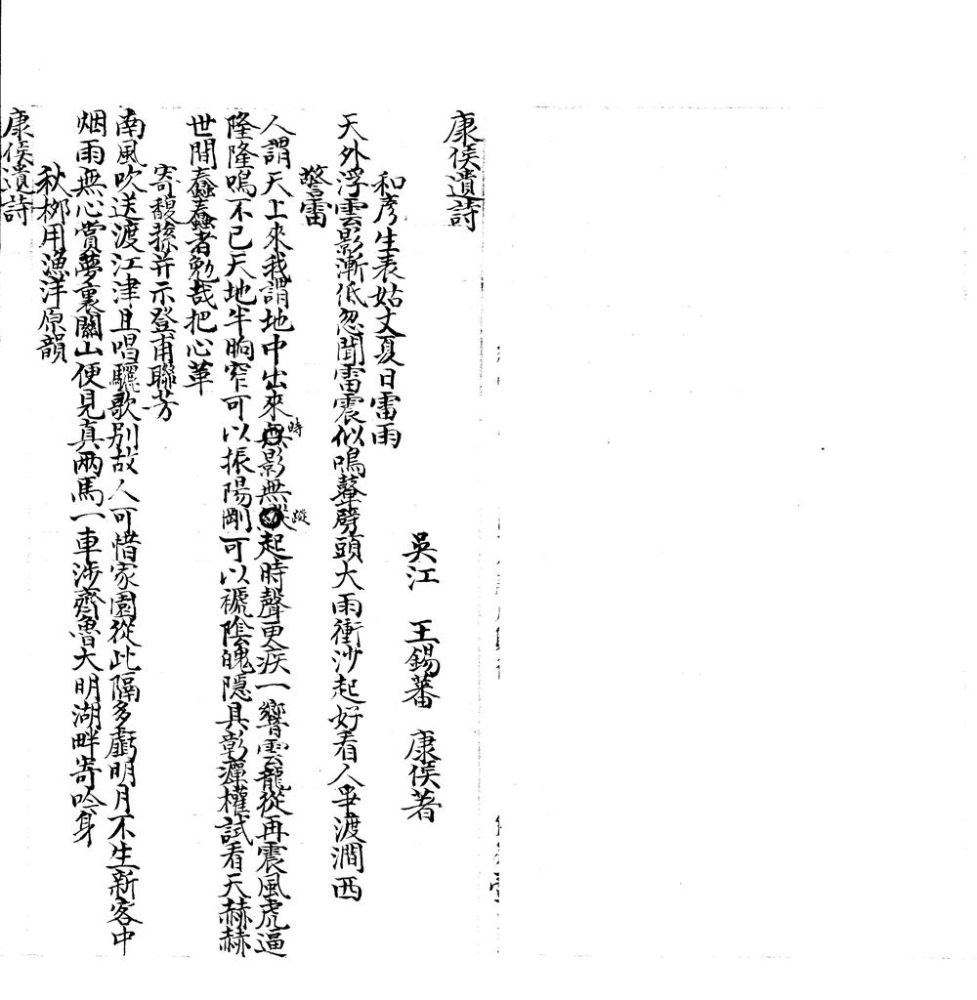 康侯遺詩
吳江　王錫蕃　康侯著
和彥生表姑丈夏日雷雨
天外浮雲影漸低忽聞雷震似鳴鼙劈頭大雨衝沙起好看人爭渡澗西
警雷
人謂天上來我謂地中出來時無影無蹤起時聲更疾一響雲龍從再震風虎逼
隆隆鳴不已天地半晌窄可以振陽剛可以褫陰魄隱具彰癉權試看天赫赫
世間蠢蠢者勉哉把心革
寄馥蓀并示登甫聯芳
南風吹送渡江津且唱驪歌別故人可惜家園從此隔多虧明月不生新客中
烟雨無心賞夢裏關山便見真兩馬一車涉齊魯大明湖畔寄吟身
秋柳用漁洋原韻
康侯遺詩